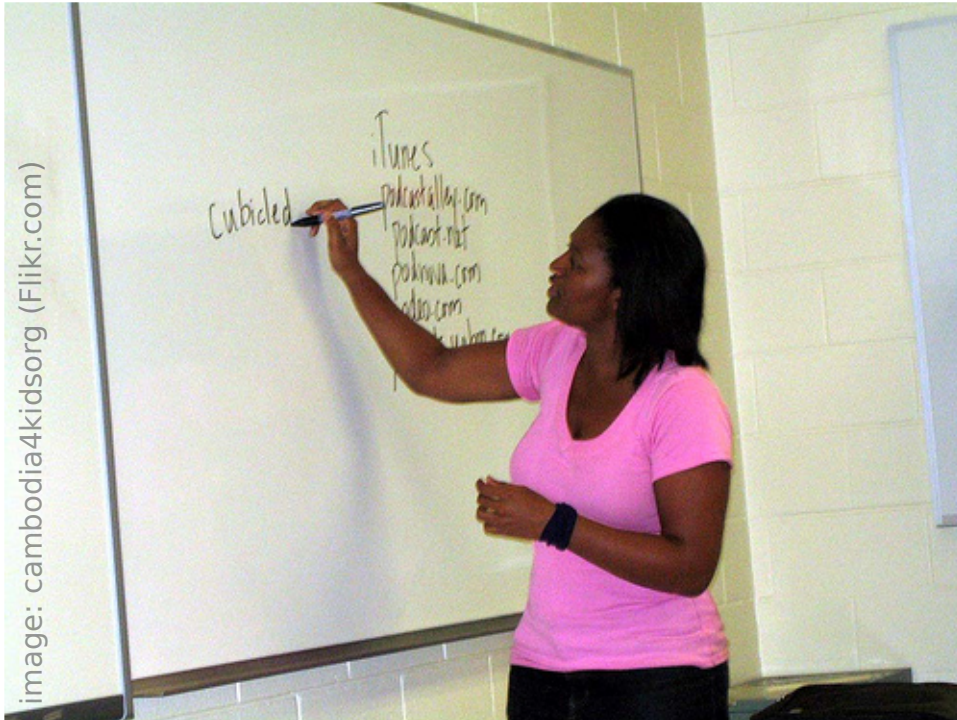 image: cambodia4kidsorg (Flikr.com)
iTunes
podcastalley.com
Cubicled
podcast.net
podnova.com
odeo.com